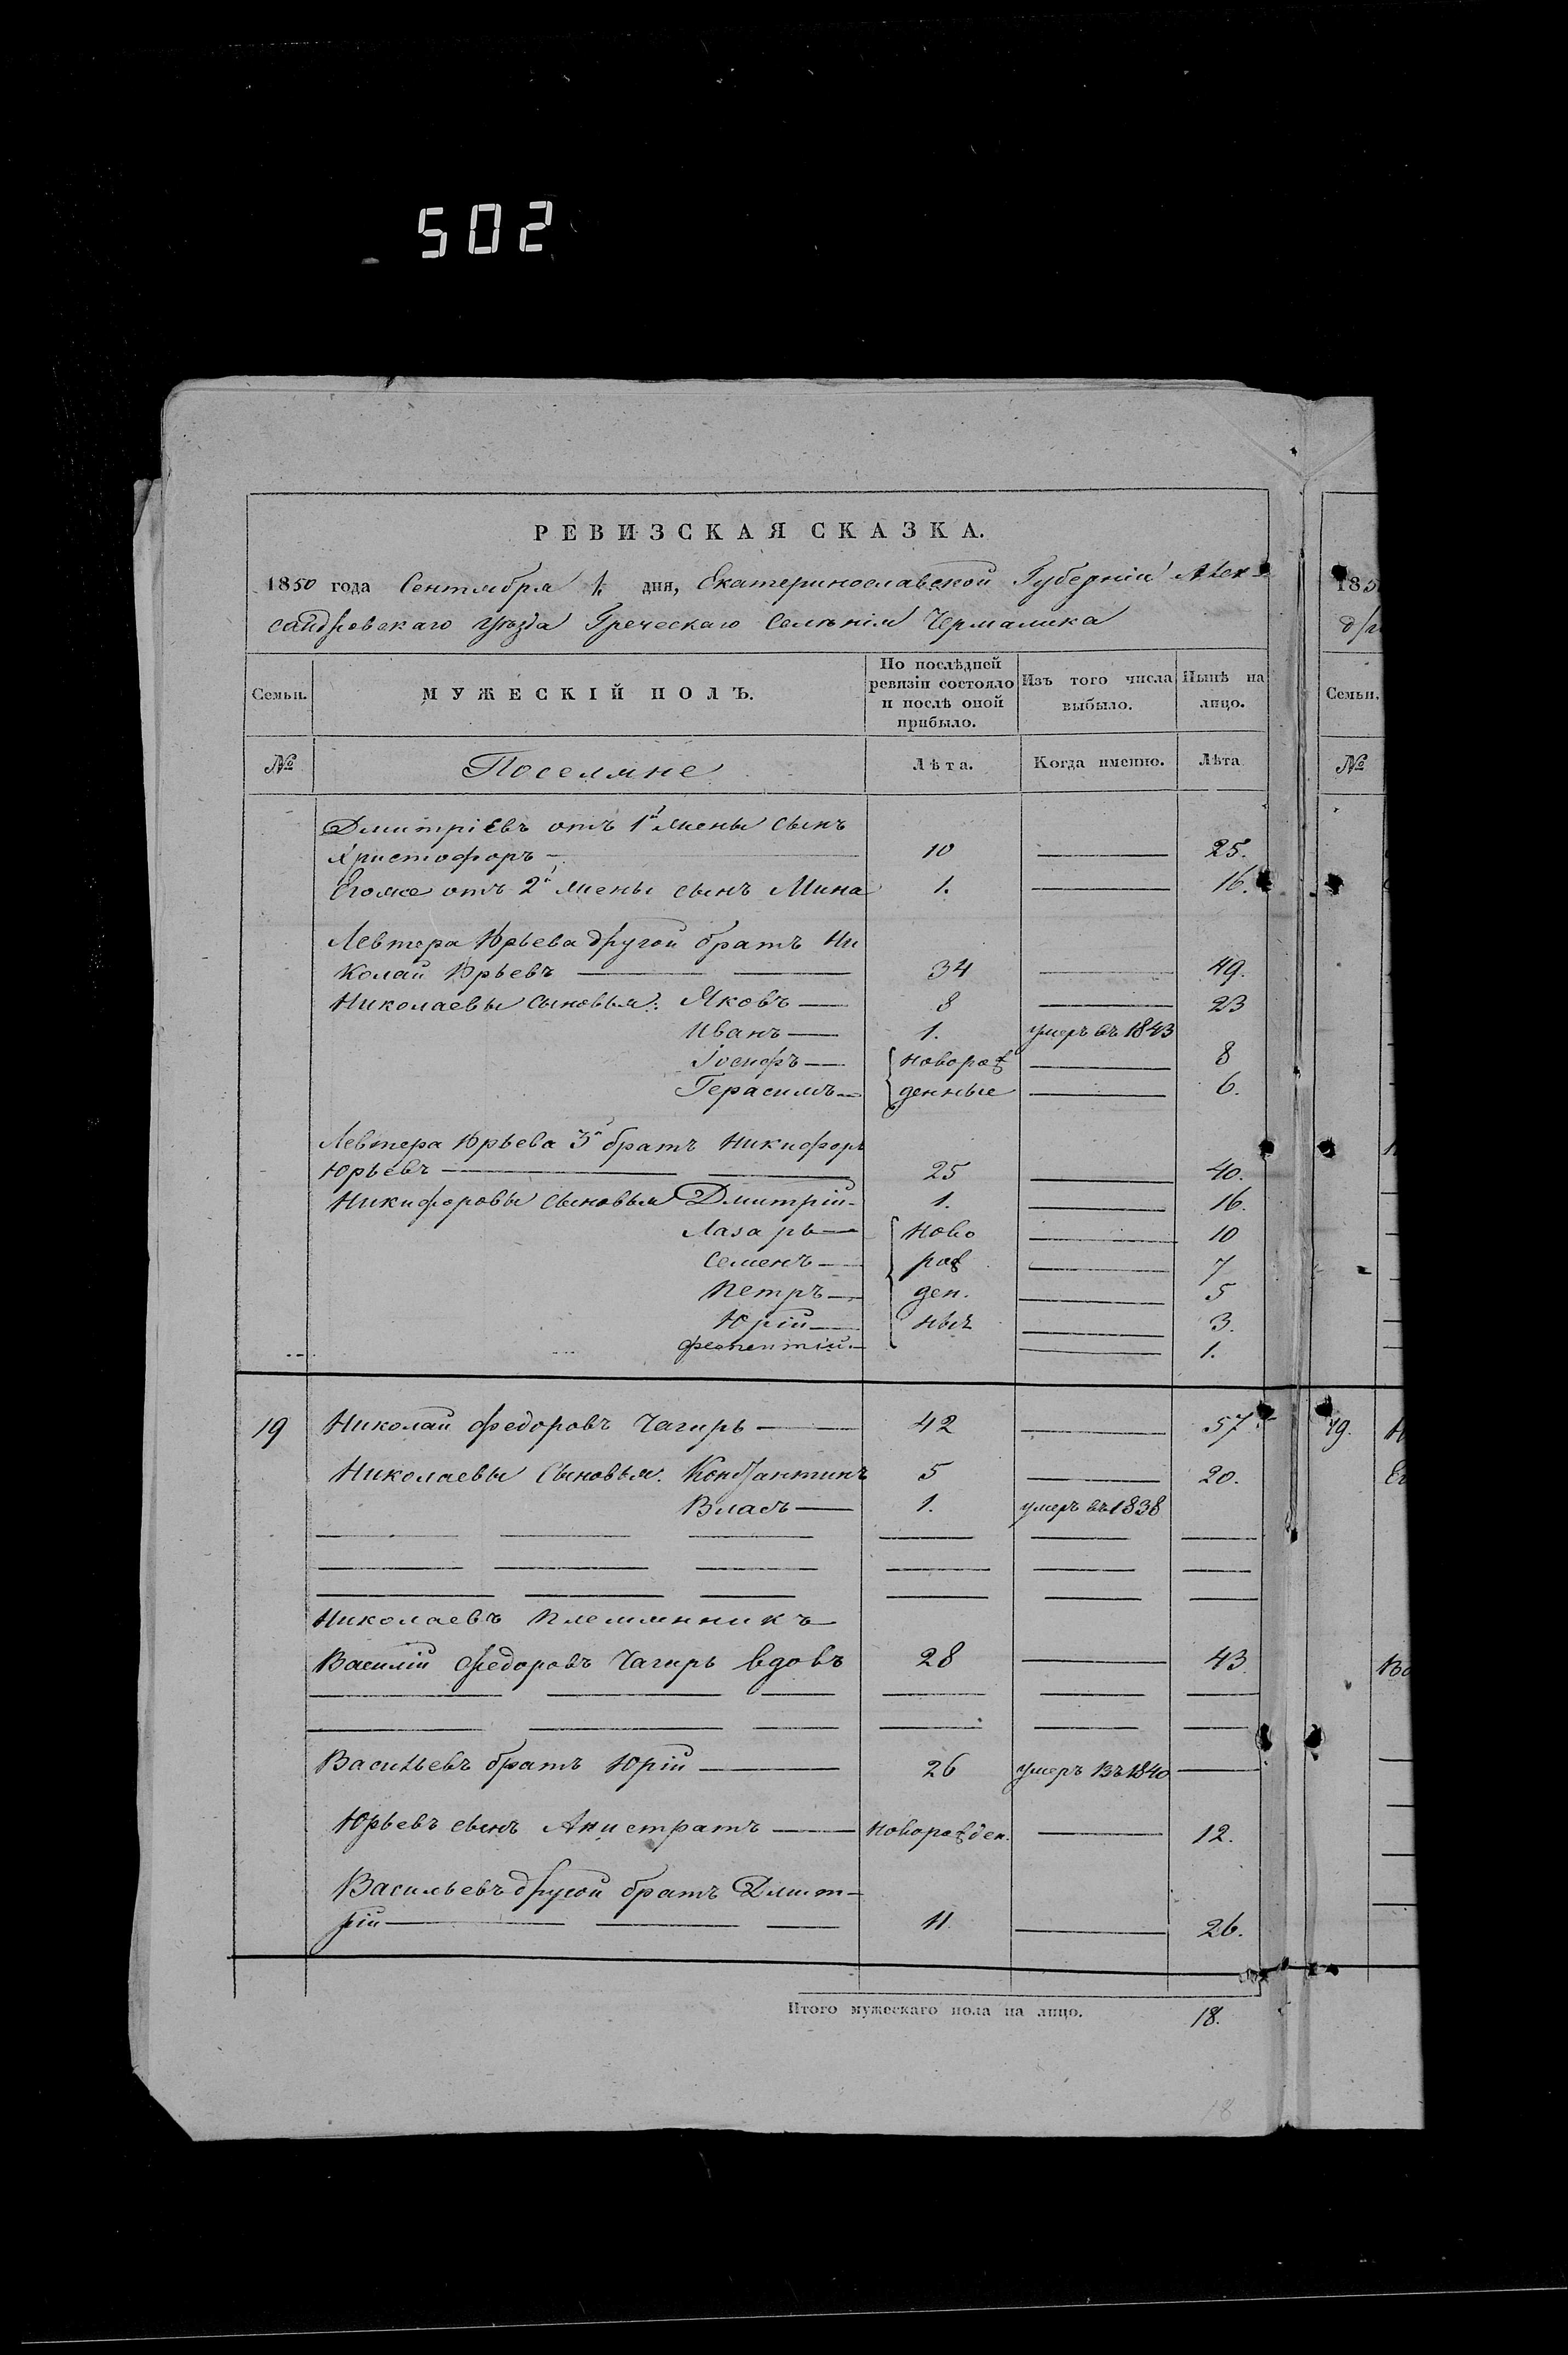 502
РЕВИЗСКАЯ СКАЗКА.
1850 года Сентября 1 дня, Екатеринославской Губерніи Алек-
сандровскаго уѣзда Греческаго Селенія Чермалика
Семьи. МУЖЕСКІЙ ПОЛЪ. По послѣдней ревизіи состояло и послѣ оной прибыло. Изъ того числа выбыло. Нынѣ на лицо.
№ Поселяне Лѣта. Когда именно. Лѣта
Дмитріевъ отъ 1й жены сынъ
Христофоръ 10 25.
Егоже отъ 2й жены сынъ Мина 1. 16.
Левтера Юрьева другой братъ Ни
колай Юрьевъ 34 49.
Николаевы сыновья: Яковъ 8 23
Иванъ 1. умеръ въ 1843
Іосифъ новорож 8
Герасимъ денные 6.
Левтера Юрьева 3й братъ Никифоръ
Юрьевъ 25 40.
Никифоровы сыновья Дмитрій 1. 16.
Лазарь ново 10
Семенъ рож 7
Петръ ден. 5
Юрій ные 3.
1.
19 Николай Федоровъ Чагиръ 42 57
Николаевы Сыновья. Константинъ 5 20.
Власъ 1. умеръ въ 1838
Николаевъ племянникъ
Василій Федоровъ Чагиръ вдовъ 28 43
Васильевъ братъ Юрій 26 умеръ въ 1840
Юрьевъ сынъ Анистратъ новорожден. 12.
Васильевъ другой братъ Дмит-
рій 11 26.
Итого мужескаго пола на лицо. 18.
18
185
Семьи.
№
19.